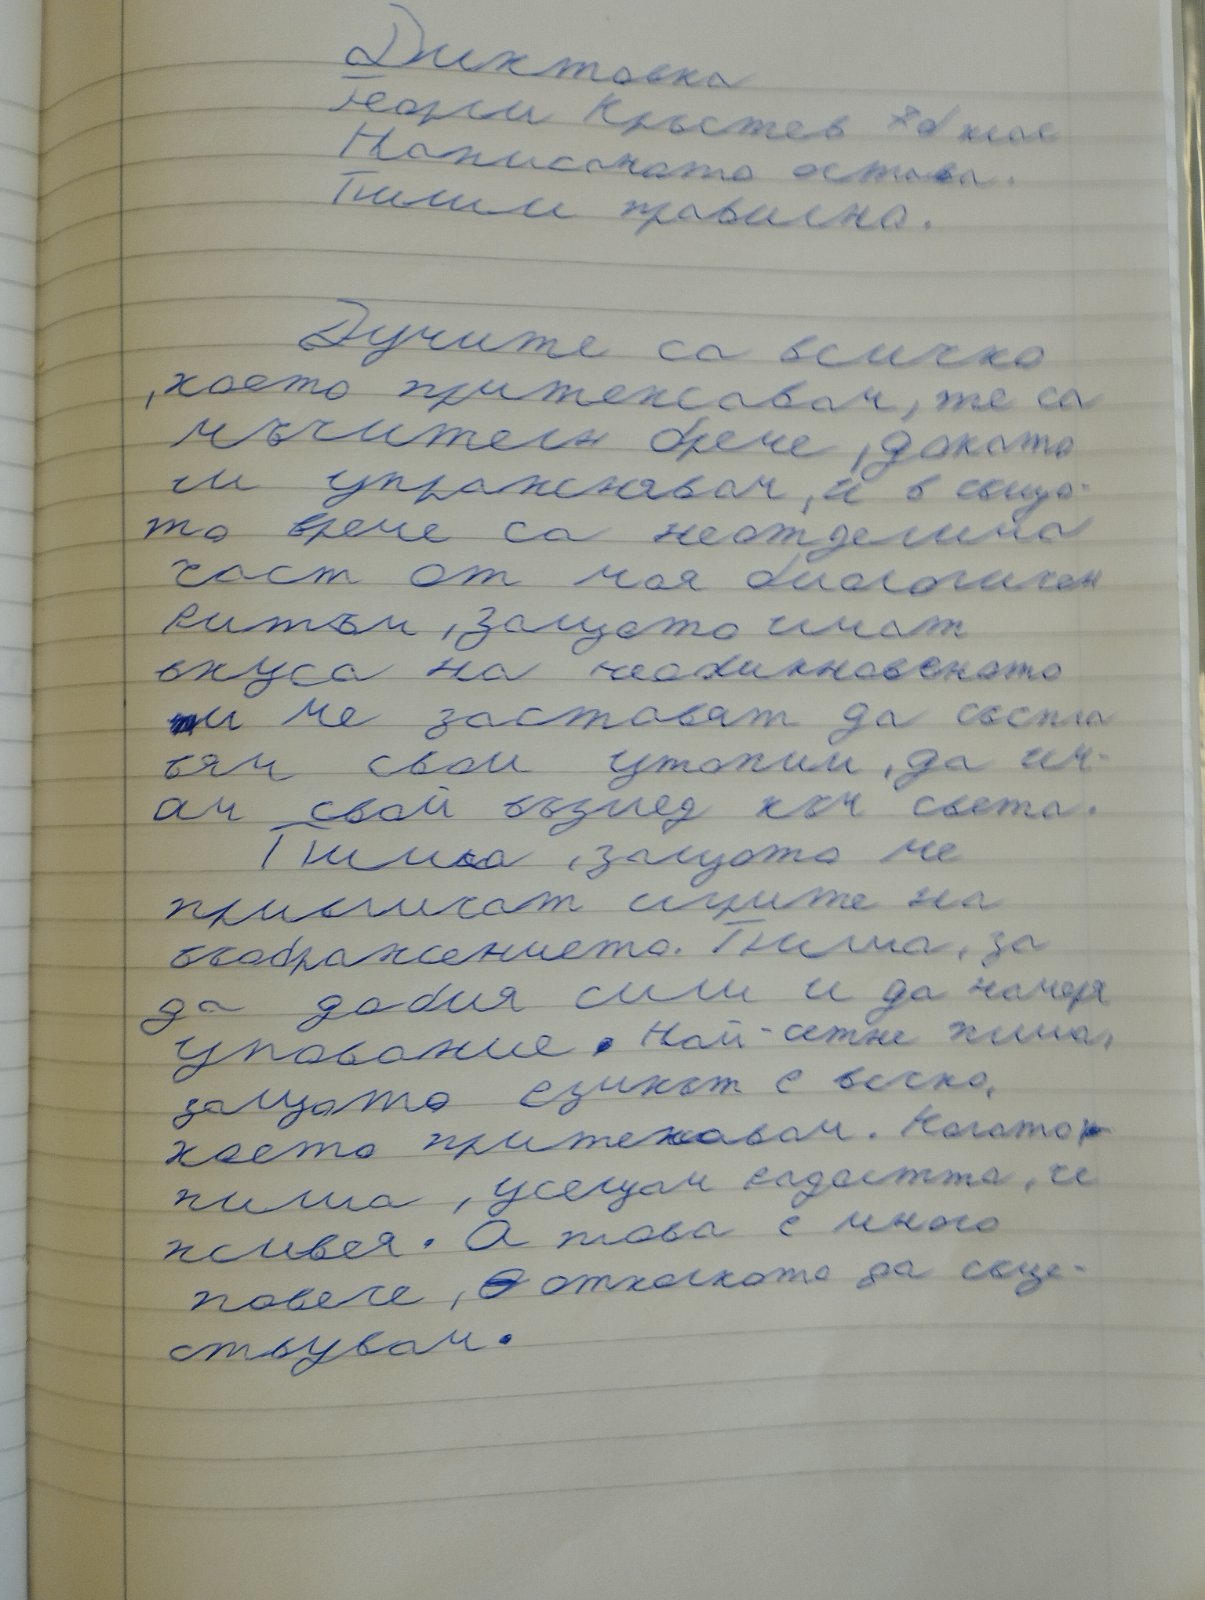 Диктовка
Георги Кръстев клас
Написаното остава.
Пиши правилно.
Думите са всичко
, което притежавам, те са
мъчителн бреме, докато
ги упражнявам, и в също-
то време са неотделима
част от моя биологичен
ритъм, защото имат
вкуса на необикновеното
и ме заставят да съспа
вям свои утопии, да им-
ам свой възглед към света.
Пиша, защото ме
привличат игрите на
въображението. Пиша, за
да добия сили и да намеря
упование. Най-сетне пиша,
защото езикът е всчко,
което притежавам. Когато
пиша, усещам радостта, че
живея. А това е много
повече, отколкото да съще-
ствувам.